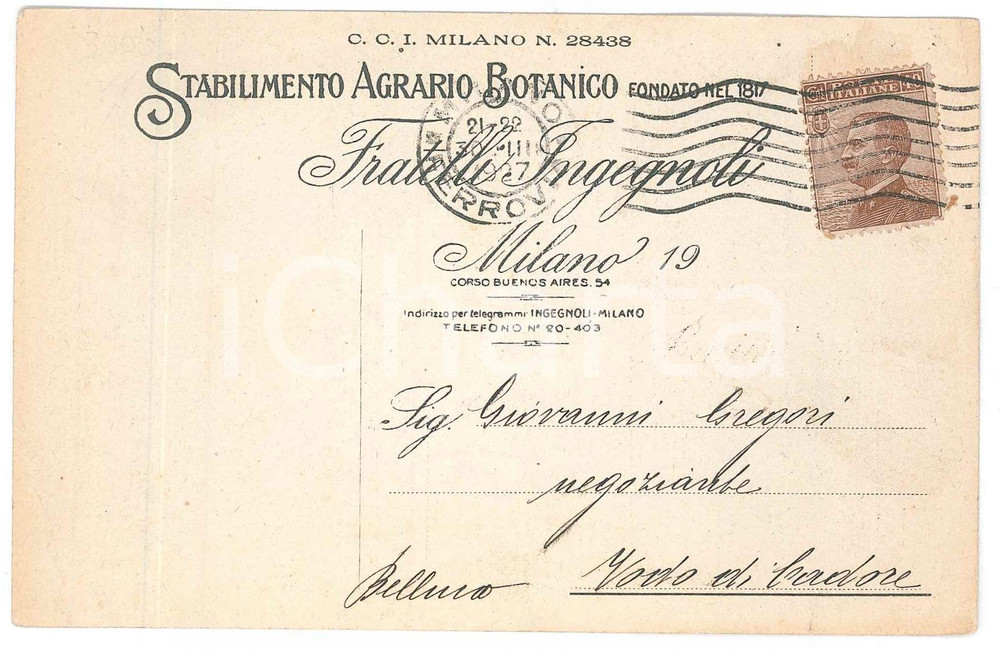 C. C. I. MILANO N. 28438
STABILIMENTO AGRARIO BOTANICO FONDATO NEL 1817
Fratelli Ingegnoli
MILANO
21-22
30 III
1927
FERROVIA
ITALIANE
Milano 19
CORSO BUENOS AIRES. 54
Indirizzo per telegrammi INGEGNOLI-MILANO
TELEFONO N° 20-403
iCharta
Sig. Giovanni Gregori
negoziante
Vodo di Cadore
Belluno